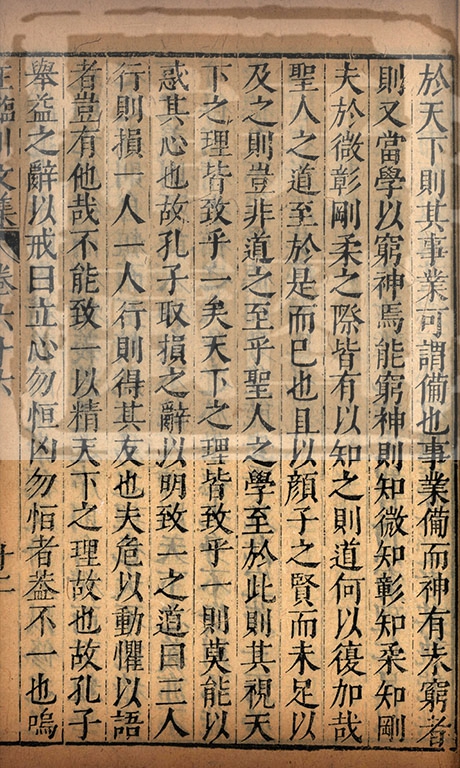 於天下則其事業可謂備也事業備而神有未窮者
則又當學以窮神焉能窮神則知微知彰知柔知剛
夫於微彰剛柔之際皆有以知之則道何以復加哉
聖人之道至於是而已也且以顔子之賢而未足以
及之則豈非道之至乎聖人之學至於此則其視天
下之理皆致乎一矣天下之理皆致乎一則莫能以
惑其心也故孔子取損之辭以明致一之道曰三人
行則損一人一人行則得其友也夫危以動懼以語
者豈有他哉不能致一以精天下之理故也故孔子
舉益之辭以戒曰立心勿恒凶勿恒者葢不一也嗚
王臨川文集 卷六十六 十二